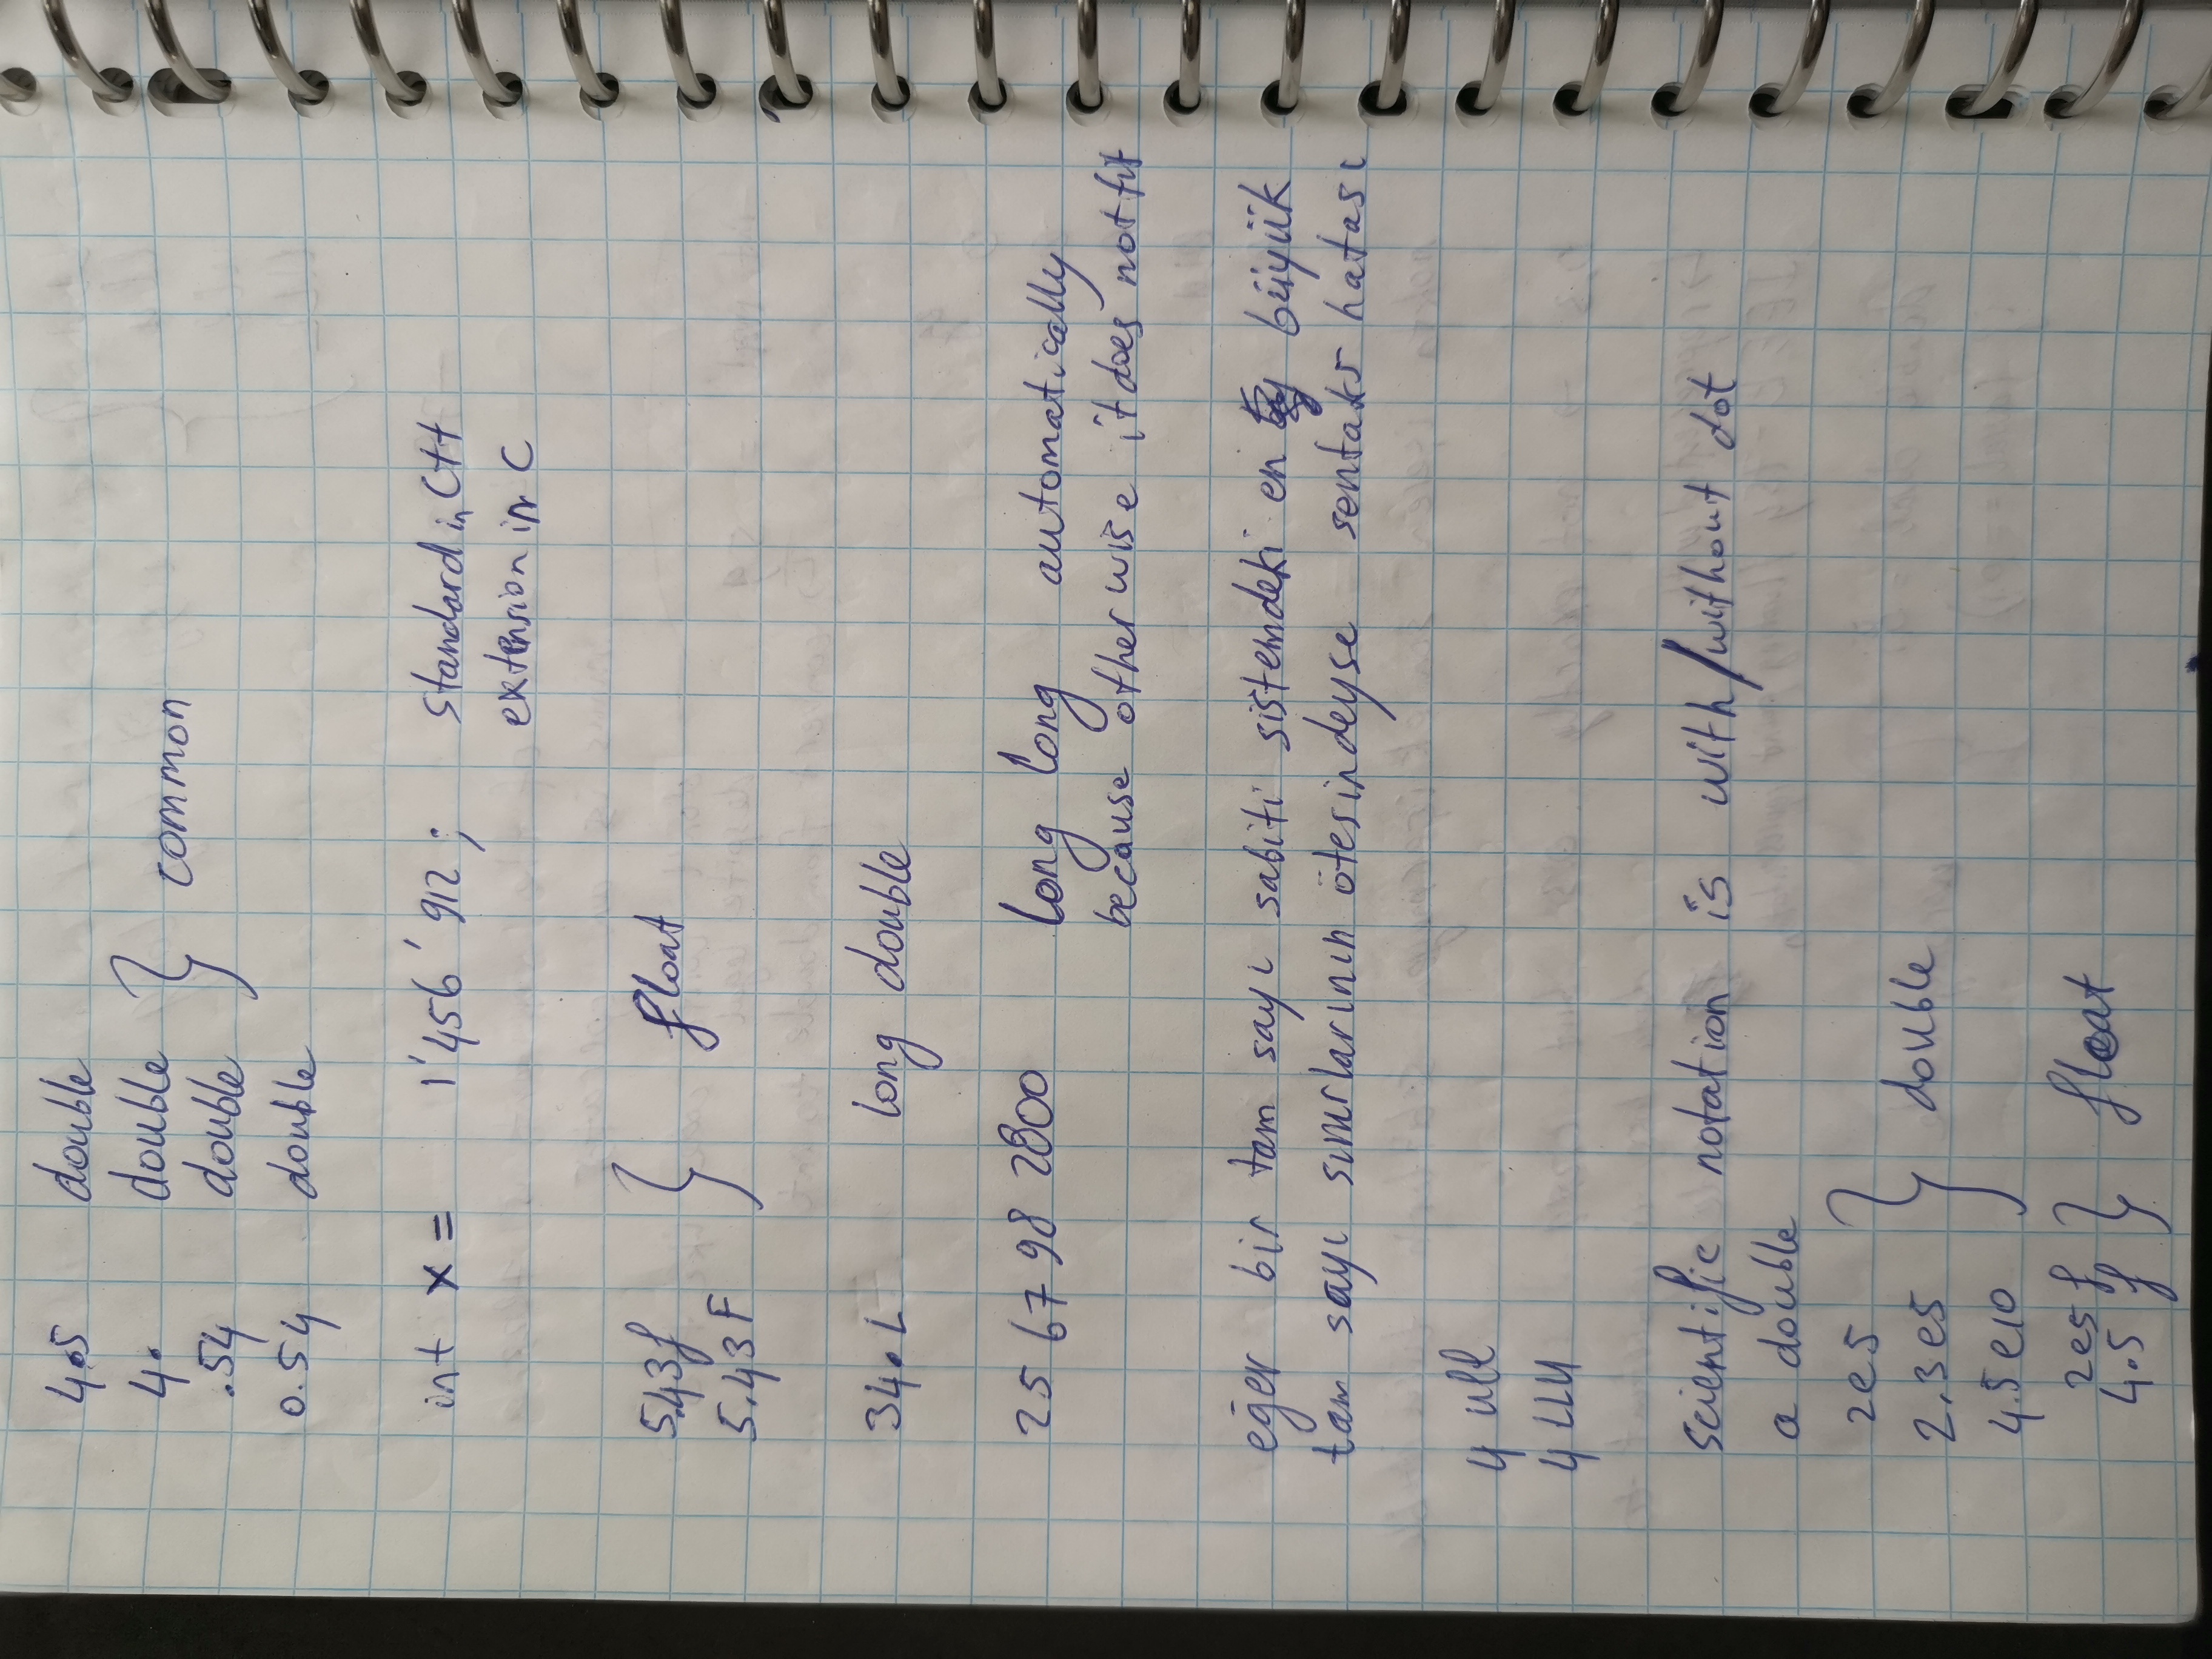 4.5 double
4. double
.54 double
} common
0.54 double
int x = 1'456'912; standard in C++
extension in C
5.43f
5.43F
} float
34.L long double
25 67 98 2800 long long automatically
because otherwise it does not fit
eğer bir tam sayı sabiti sistemdeki en büyük
tam sayı sınırlarının ötesindeyse sentaks hatası
4 ull
4 LLU
scientific notation is with/without dot
a double
2e5
2.3e5
4.5e10
} double
2e5f
4.5 f
} float